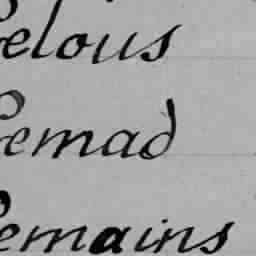 elous
emad
emains